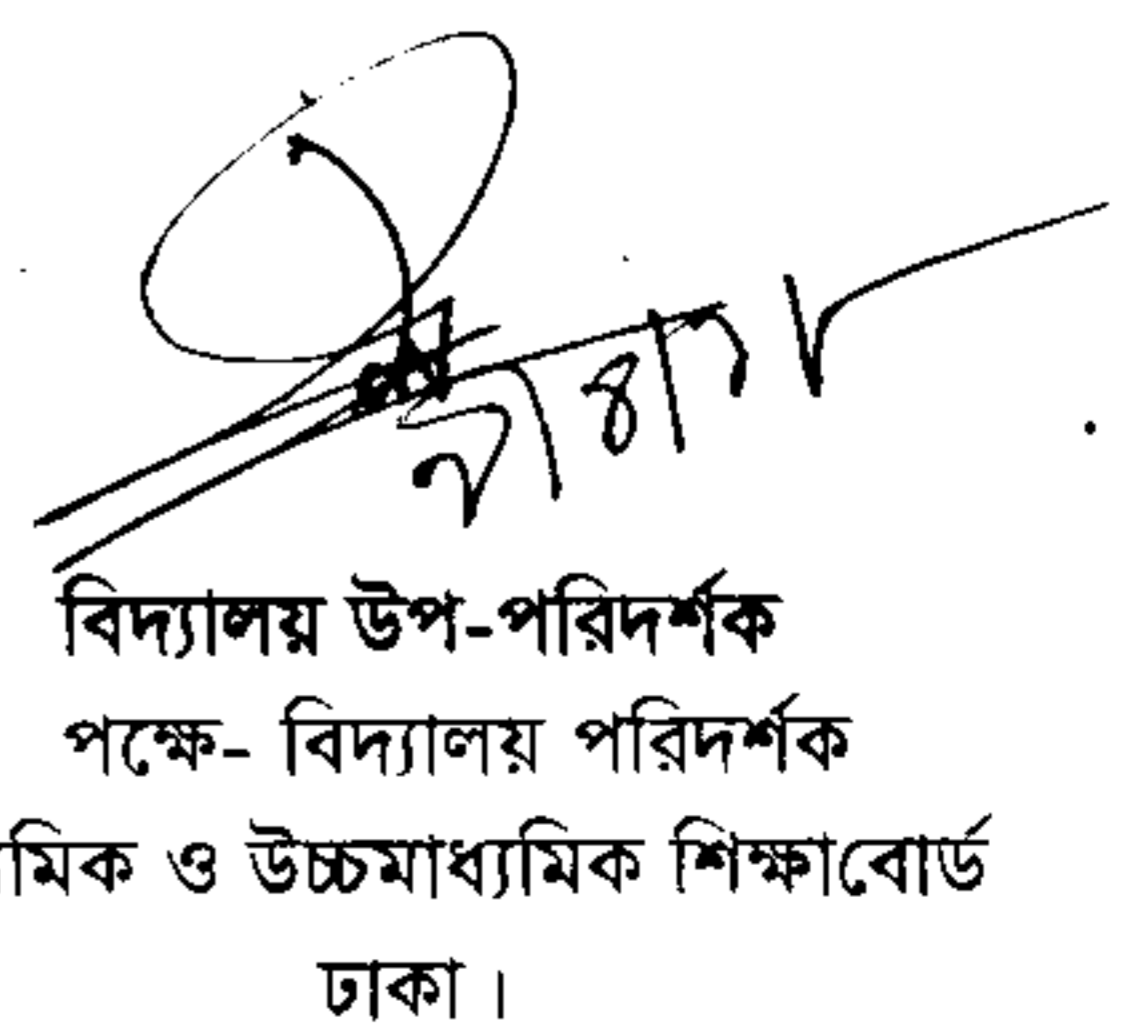 বিদ্যালয় উপ-পরিদর্শক
পক্ষে- বিদ্যালয় পরিদর্শক
মিক ও উচ্চমাধ্যমিক শিক্ষাবোর্ড
ঢাকা।